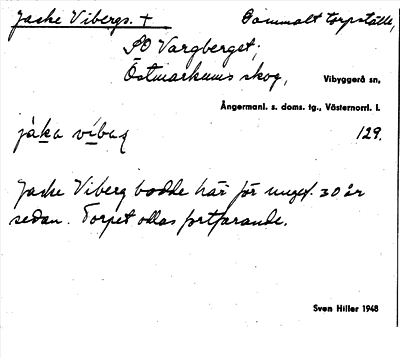 Jacke Vibergs. + Gammalt torpställe,
SO Vargberget,
Östmarkums skog, Vibyggerå sn,
Ångermanl. s. doms. tg., Västernorrl. l.
129.
Jacke Viberg bodde här för unget. 30 år
sedan. Torpet odlas fortfarande.
Sven Hiller 1948